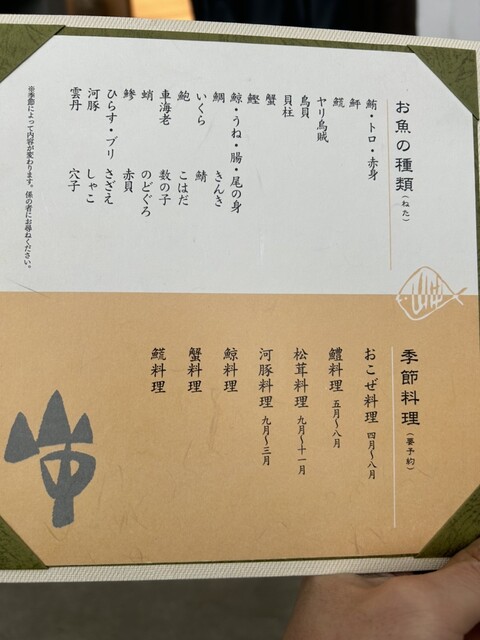 お魚の種類(ねた)
鮪・トロ・赤身
鮃
ヤリ烏賊
鳥貝
貝柱
蟹
鰹
鯨・うね・腸・尾の身
鯛 きんき
いくら 鯖
鮑 こはだ
車海老 数の子
蛸 のどぐろ
鯵 赤貝
ひらす・ブリ さざえ
河豚 しゃこ
雲丹 穴子
※季節によって内容が変わります。係の者にお尋ねください。
季節料理(要予約)
おこぜ料理 四月〜八月
鱧料理 五月〜八月
松茸料理 九月〜十一月
河豚料理 九月〜三月
鯨料理
蟹料理